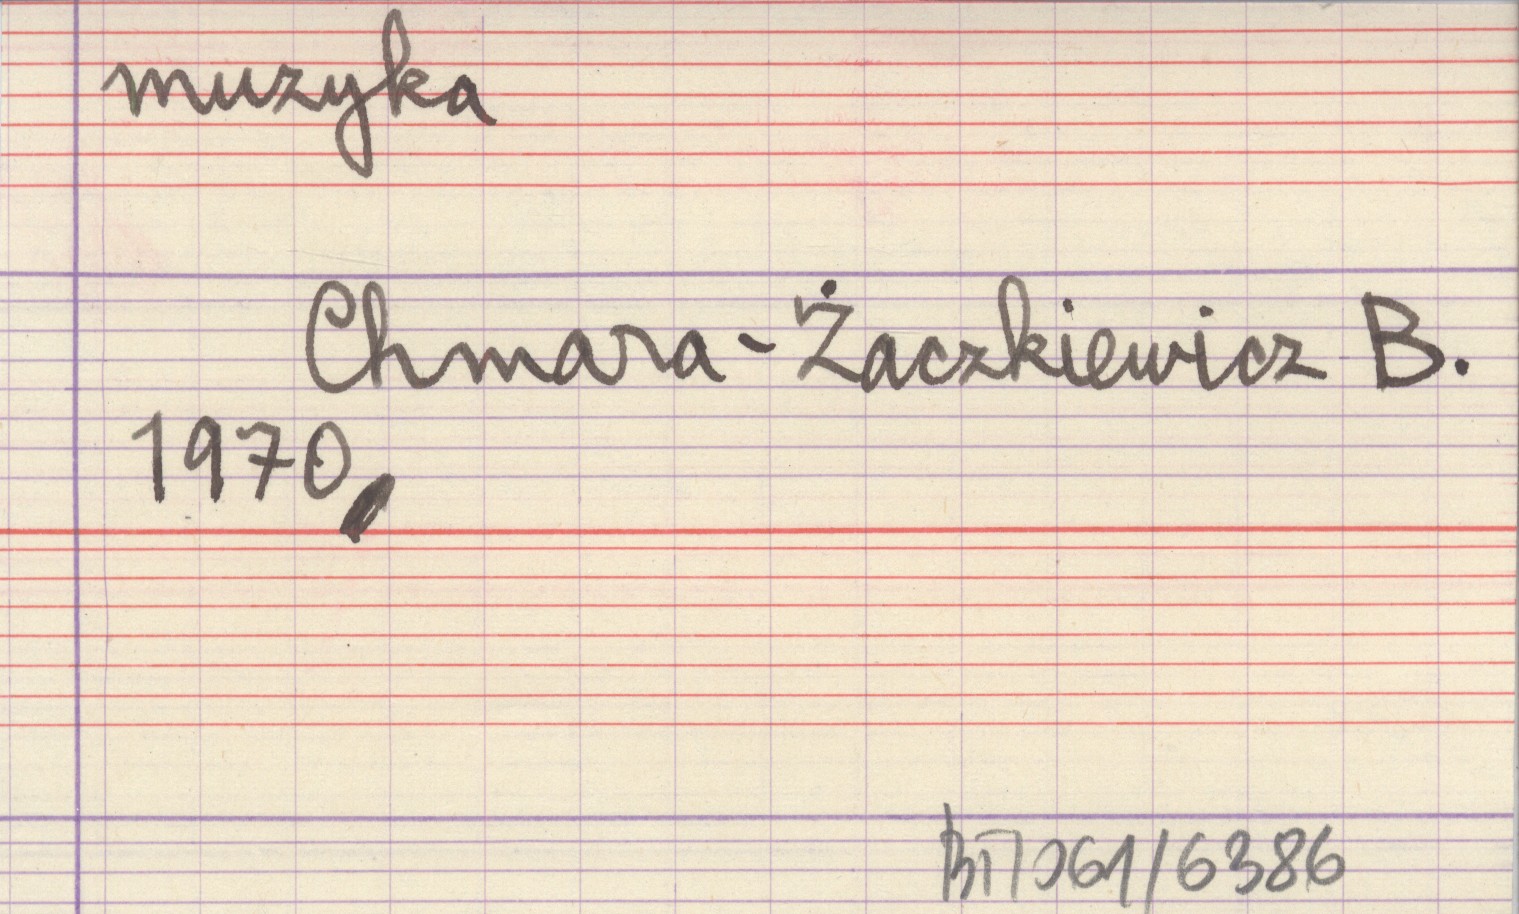 muzyka
Chmara-Żaczkiewicz B.
1970,
/6386